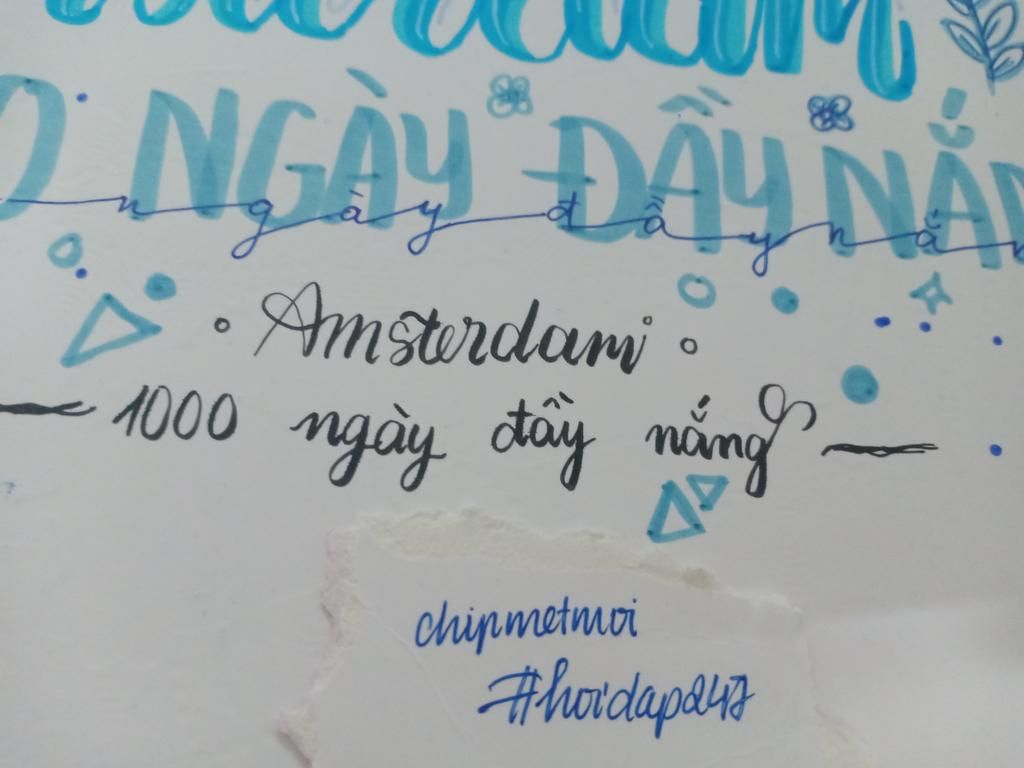 NGÀY ĐẦY
ngày đầy
Amsterdam
1000 ngày đầy nắng
chipmetmoi
#hoidap247